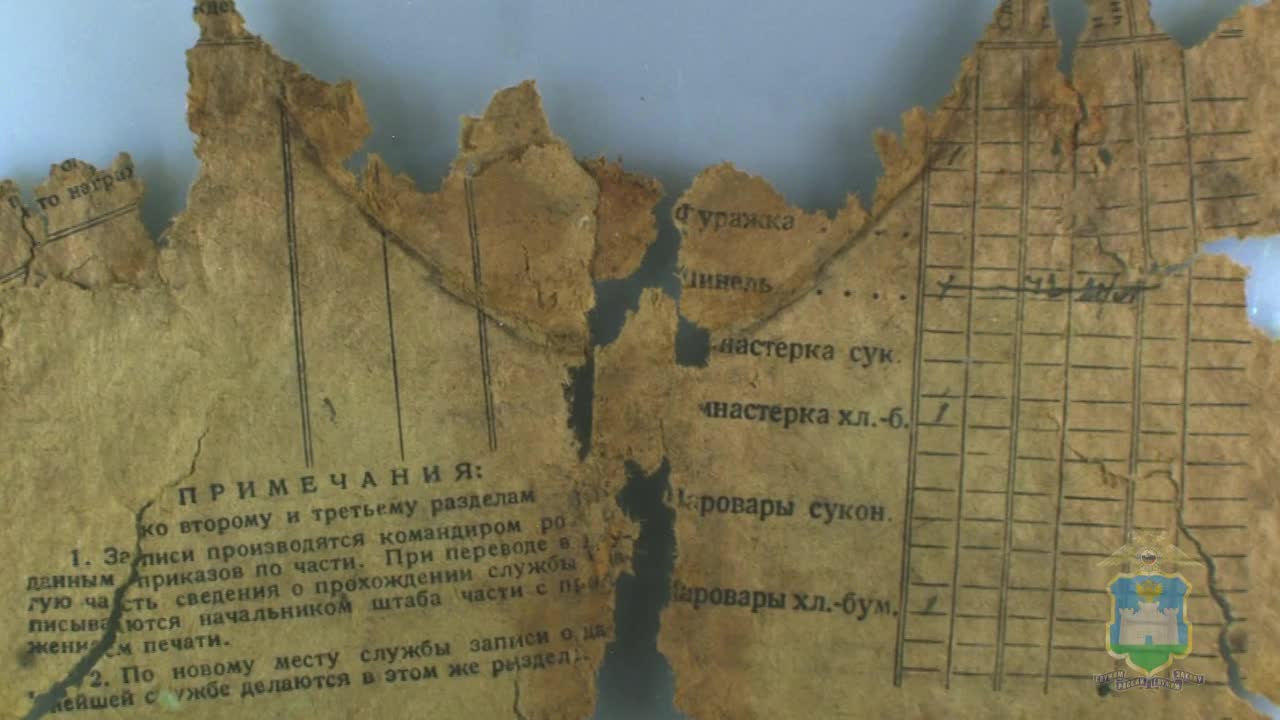 то награж
ПРИМЕЧАНИЯ:
ко второму и третьему разделам
1. Записи производятся командиром ро
данным приказов по части. При переводе в
гую часть сведения о прохождении службы
писываются начальником штаба части с п
жением печати.
2. По новому месту службы записи о да
нейшей службе делаются в этом же разделе.
Фуражка . . .
Шинель . . . .
настерка сук.
мнастерка хл.-б. 1
Шаровары сукон.
Шаровары хл.-бум. 1